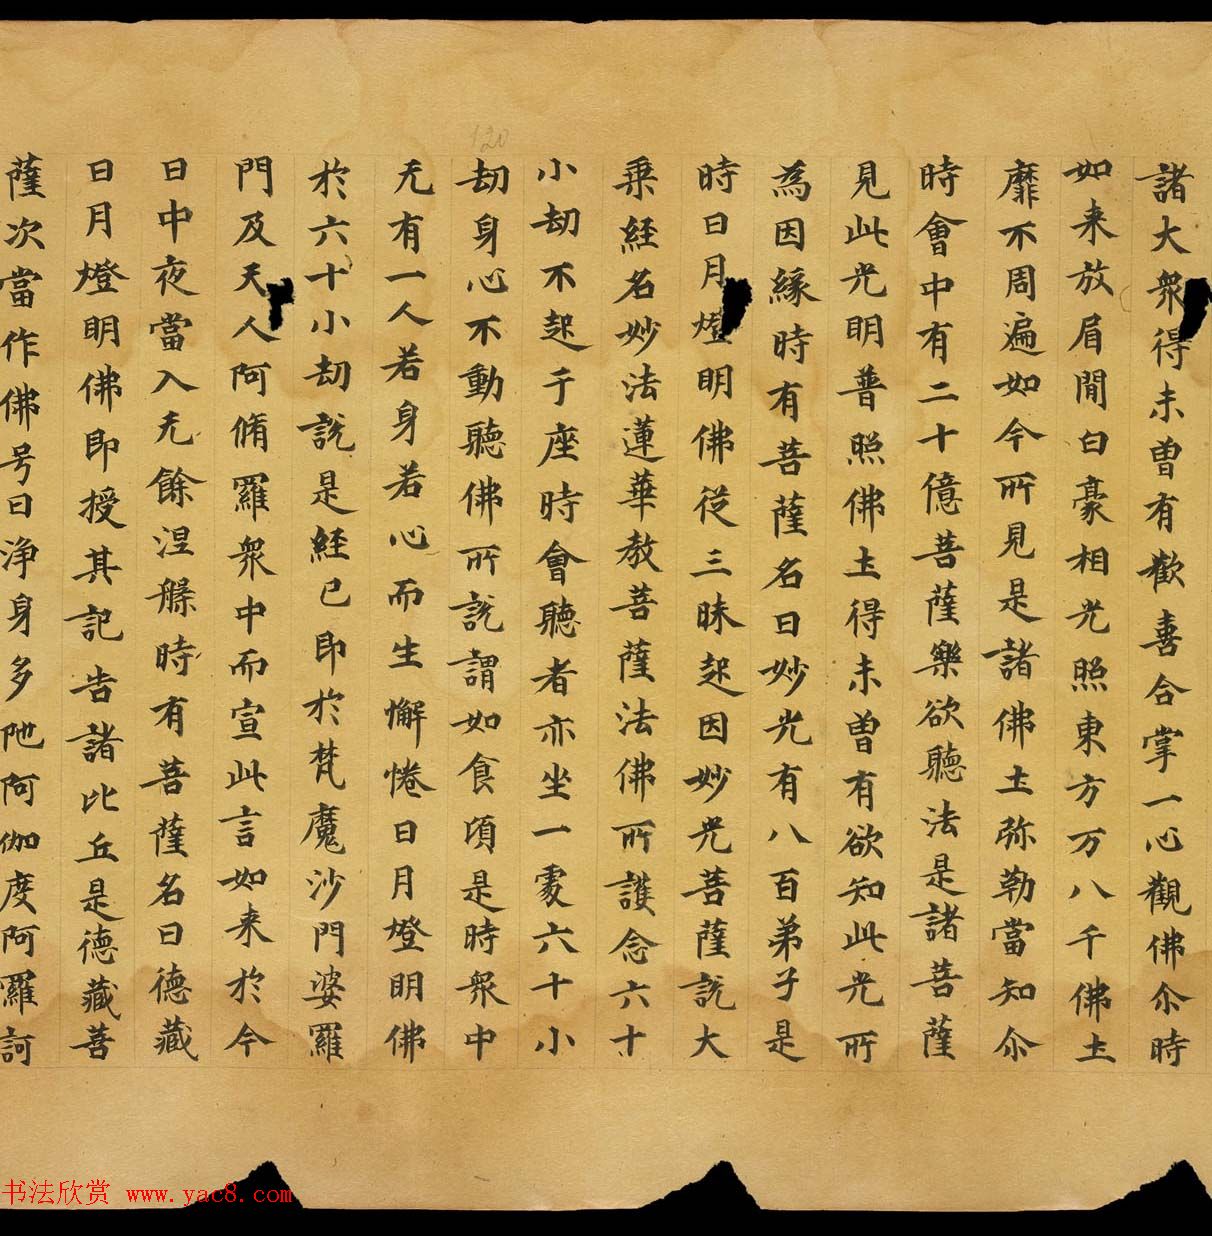 諸大衆得未曽有歡喜合掌一心觀佛尒時
如来放眉間白豪相光照東方万八千佛圡
靡不周遍如今所見是諸佛圡弥勒當知尒
時會中有二十億菩薩樂欲聽法是諸菩薩
見此光明普照佛圡得未曽有欲知此光所
為因緣時有菩薩名曰妙光有八百弟子是
時日月燈明佛從三昧起因妙光菩薩說大
乗経名妙法蓮華教菩薩法佛所護念六十
小劫不起于座時會聽者亦坐一處六十小
劫身心不動聽佛所說謂如食頃是時衆中
无有一人若身若心而生懈惓日月燈明佛
於六十小劫說是経已即於梵魔沙門婆羅
門及天人阿脩羅衆中而宣此言如来於今
日中夜當入无餘涅槃時有菩薩名曰德藏
日月燈明佛即授其記告諸比丘是德藏菩
薩次當作佛号曰浄身多陁阿伽度阿羅訶
120
书法欣赏 www.yac8.com